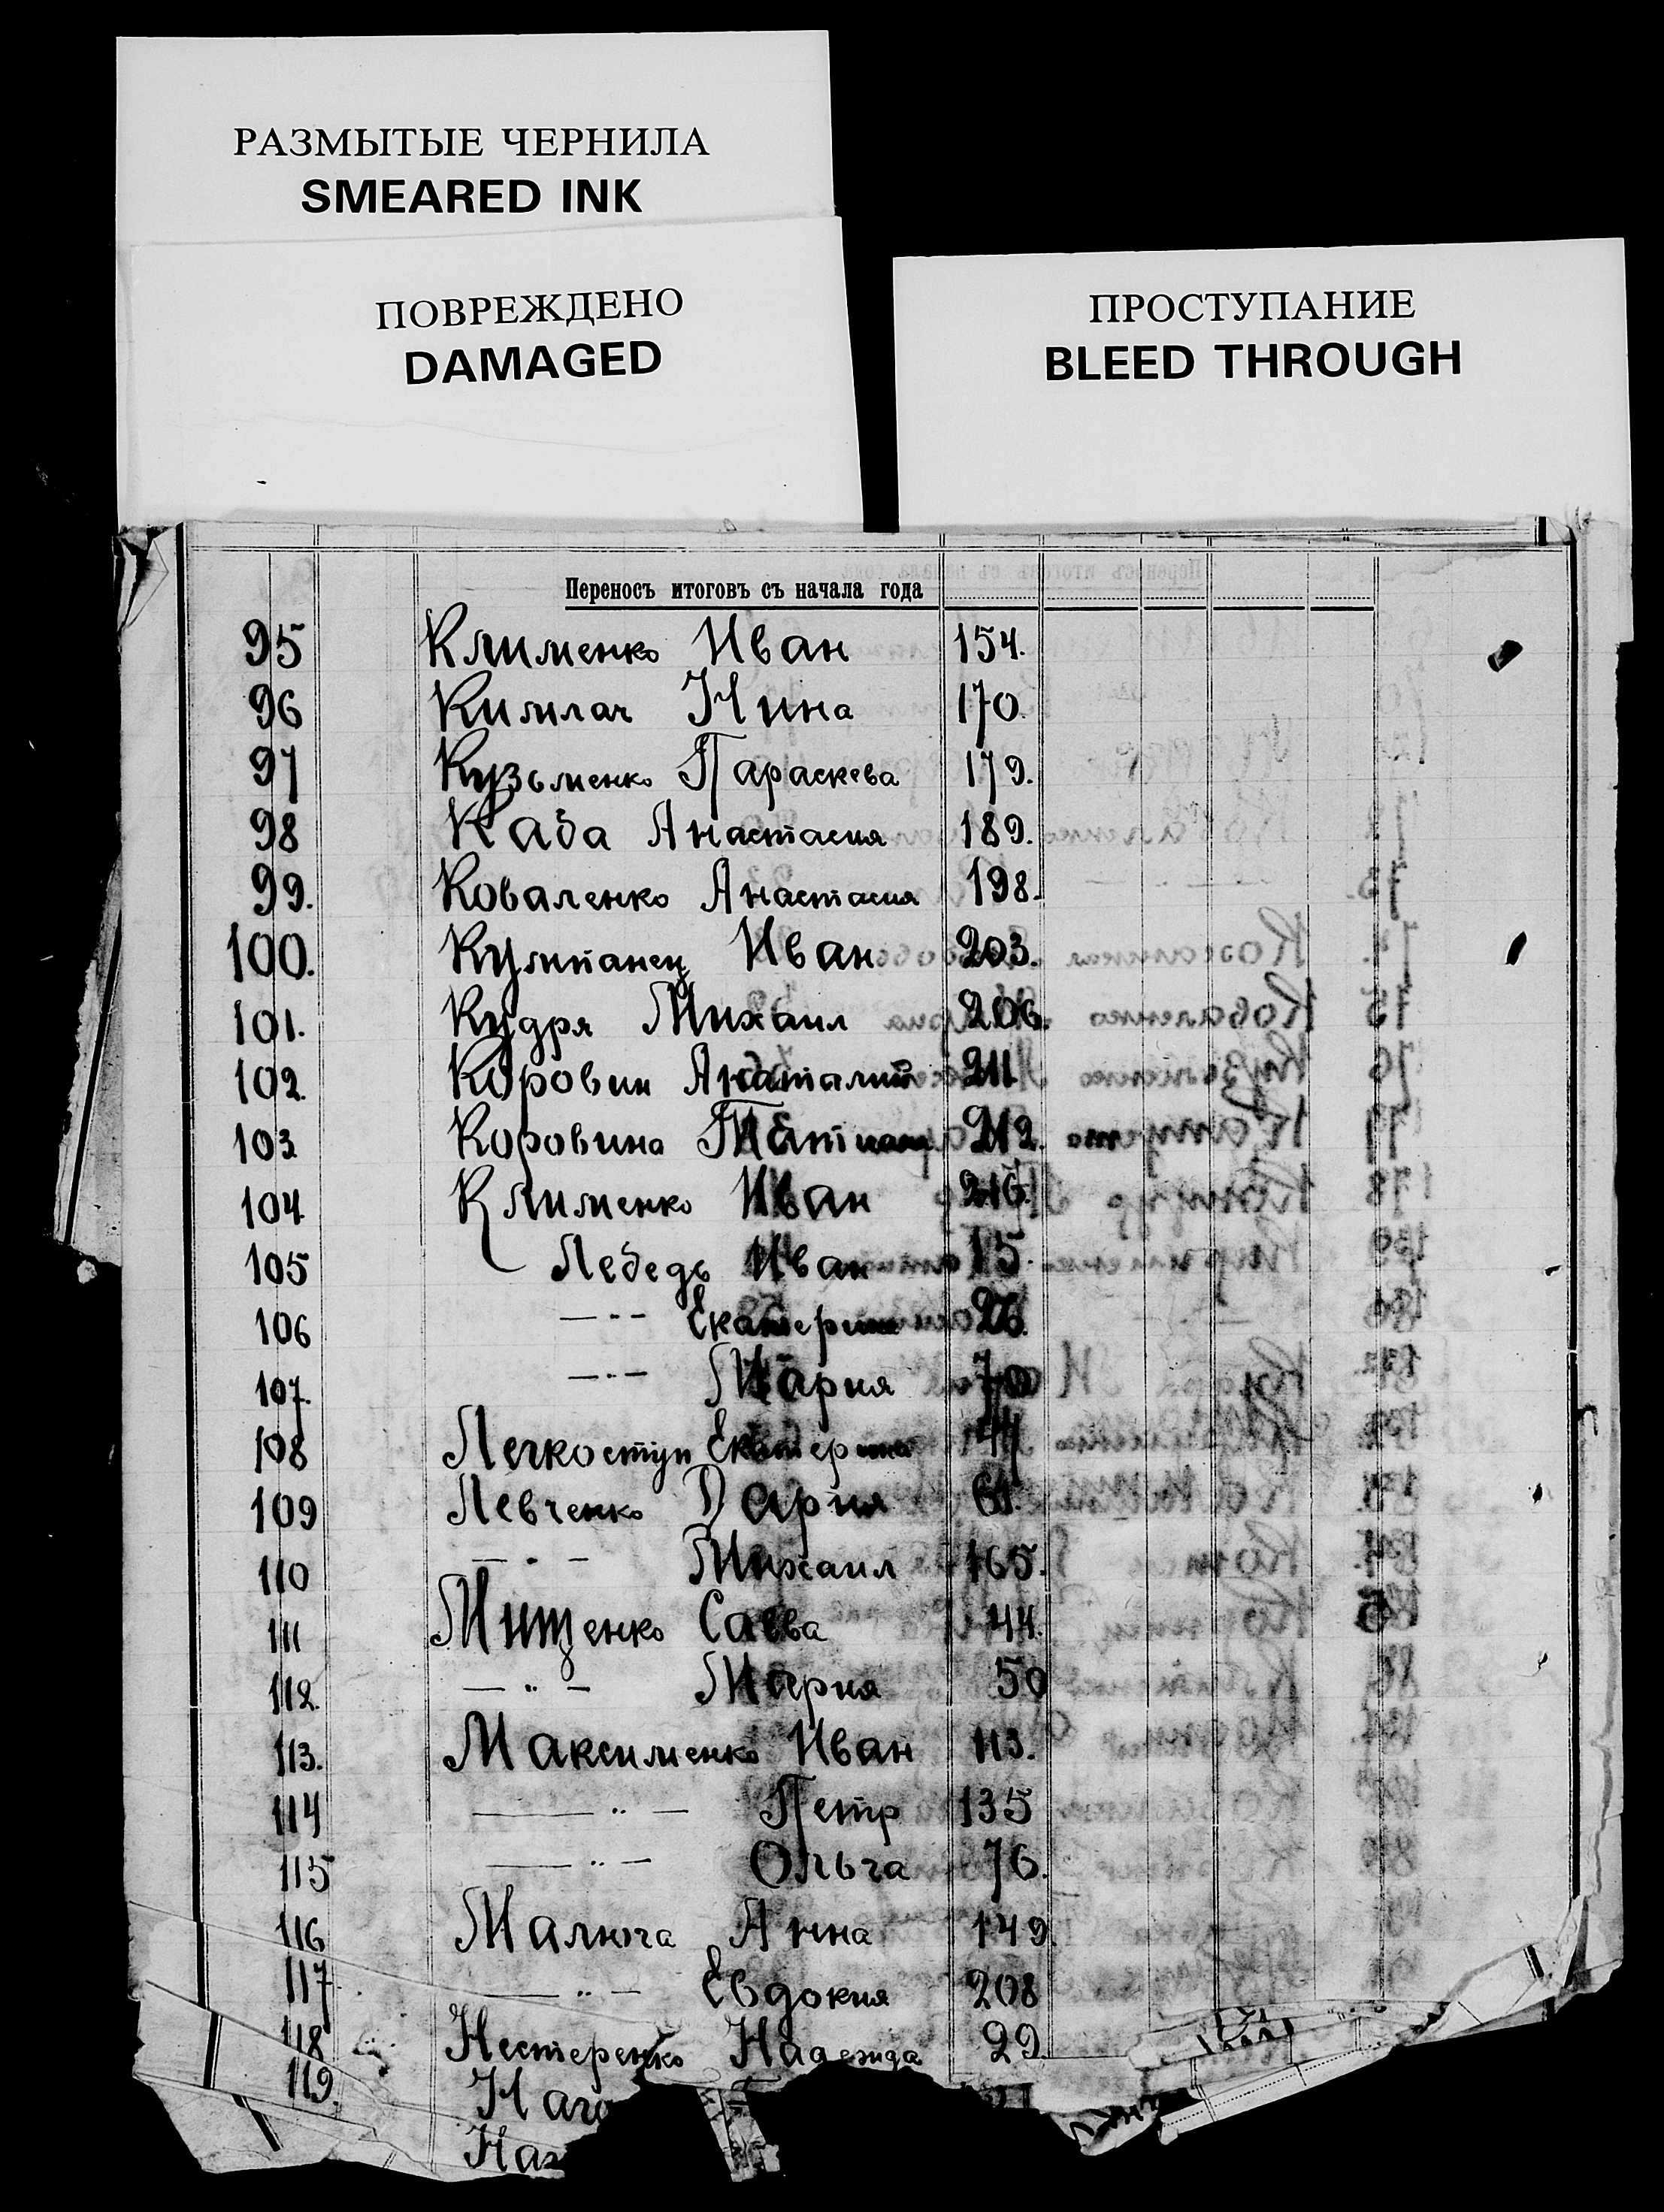 РАЗМЫТЫЕ ЧЕРНИЛА
SMEARED INK
ПОВРЕЖДЕНО
DAMAGED
ПРОСТУПАНИЕ
BLEED THROUGH
Переносъ итоговъ съ начала года
95 Клименко Иван 154.
96 Нина 170.
97 Кузьменко Параскева 179.
98 Каба Анастасия 189.
99. Коваленко Анастасия 198.
100. Иван 203.
101. Кудря Михаил 206.
102. Коровин Анаталий 211
103 Коровина Татиана 212.
104 Клименко Иван 216.
105 Лебедь Иван 15.
106 — -- Екатерина 26.
107. — -- Мария 70
108 Легкоступ Екатерина 44
109 Левченко Дария 61.
110 — " — Михаил 165.
111 Мищенко Савва 44.
112. — " — Мария 50
113. Максименко Иван 113.
114 — " — Петр 135
115 — " — Ольга 76.
116 Малюга Анна 149.
117 — " — Евдокия 208
118 Нестеренко Надежда 29
119.